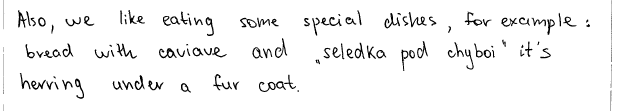 Also, we like eating some special dishes, for example:
bread with caviave and „seledka pod chyboi" it's
herring under a fur coat.